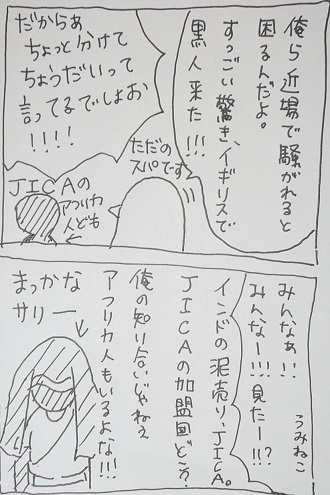 俺ら近場で騒がれると
困るんだよ。
すっごい驚き、イギリスで
黒人来た!!!
だからぁ
ちょっと分けて
ちょうだいって
言ってるでしょお
!!!!
ただの
スパです
JICAの
アフリカ
人ども
うみねこ
みんなぁ!!
みんなー!!!見たー!!?
インドの泥売り、JICA。
JICAの加盟国どこ?
俺の知り合いじゃねぇ
アフリカ人もいるよな!!!
まっかな
サリー